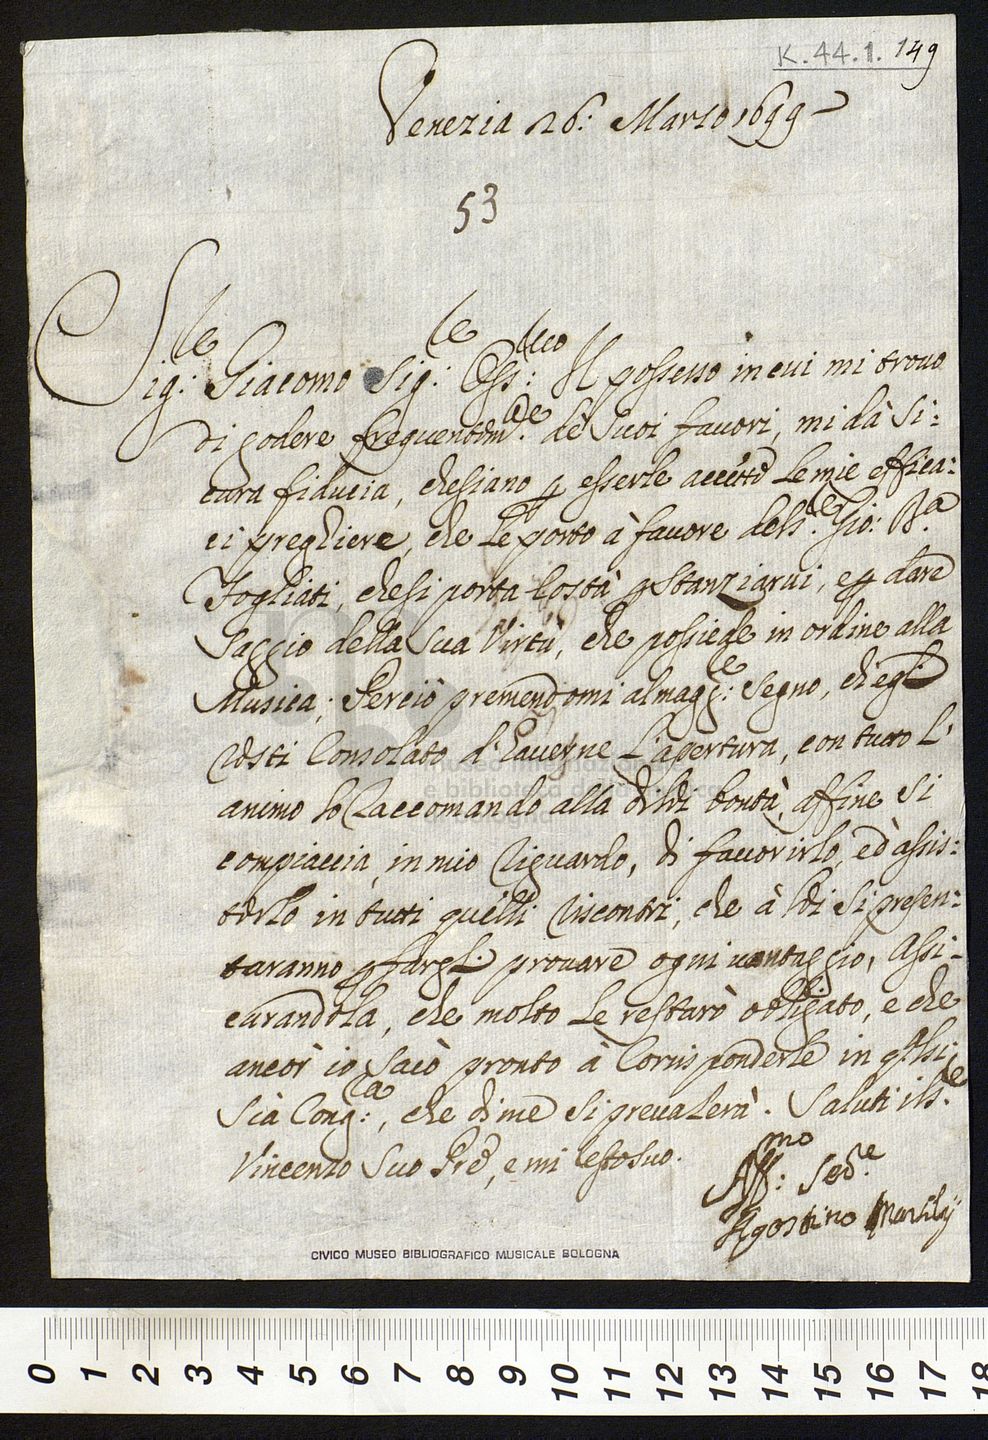 K.44.1. 149
Venezia 26: Marzo 1699
53
Sig:re Giacomo Sig:re Oss:mo Il possesso in cui mi trovo
di godere frequentem:te de suoi favori, mi dà si:
cura fiducia, che siano p esserle accette le mie effica:
ci preghiere, che le porto à favore del S:re Gio: Bta
Fogliati, che si porta Costà p stanziarvi, e p dare
saggio della sua Virtù, che possiede in ordine alla
Musica; Perciò premendomi al magg:re segno, ch'egli
resti Consolato d'haverne l'apertura, con tutto l'
animo lo Raccomando alla di lei bontà, affine si
compiaccia, in mio riguardo, di favorirlo, ed assis:
terlo in tutti quelli riscontri, che à lei si presen:
taranno p fargli provare ogni vantaggio, Assi-
curandola, che molto le restarò obligato, e che
ancor io sarò pronto à Corrisponderle in qlsi:
sia Cong:a, che di me si prevalerà. Saluti il S:re
Vincenzo suo Pre, e mi resto suo.
Aff:mo Ser:re
Agostino Marsilij
CIVICO MUSEO BIBLIOGRAFICO MUSICALE BOLOGNA
museo internazionale
e biblioteca della musica
di bologna
0 1 2 3 4 5 6 7 8 9 10 11 12 13 14 15 16 17 18